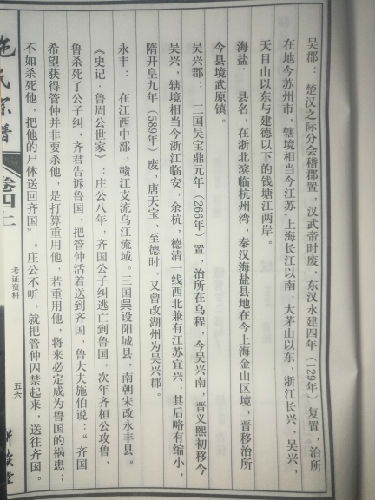 吴郡：楚汉之际分会稽郡置，汉武帝时废，东汉永建四年（129年）复置，治所
在地今苏州市，辖境相当今江苏、上海长江以南，大茅山以东，浙江长兴，吴兴，
天目山以东与建德以下的钱塘江两岸。
海盐：县名，在浙北滨临杭州湾，秦汉海盐县地在今上海金山区境，晋移治所
今县境武原镇。
吴兴郡：三国吴宝鼎元年（266年）置，治所在乌程，今吴兴南，晋义熙初移今
吴兴，辖境相当今浙江临安，余杭，德清一线西北兼有江苏宜兴，其后略有缩小，
隋开皇九年（589年）废，唐天宝、至德时，又曾改湖州为吴兴郡。
永丰：在江西中部，赣江支流乌江流域。三国吴设阳城县，南朝宋改永丰县。
《史记·鲁周公世家》：庄公八年，齐国公子纠逃亡到鲁国，次年齐桓公攻鲁，
鲁杀死了公子纠，齐君告诉鲁国，把管仲活着送到齐国，鲁大夫施伯说：“齐国
希望获得管仲并非要杀他，是打算重用他，若重用他，将来必定成为鲁国的祸患；
不如杀死他，把他的尸体送回齐国”，庄公不听，就把管仲囚禁起来，送往齐国。
施氏宗谱
卷四二
考证资料
五六